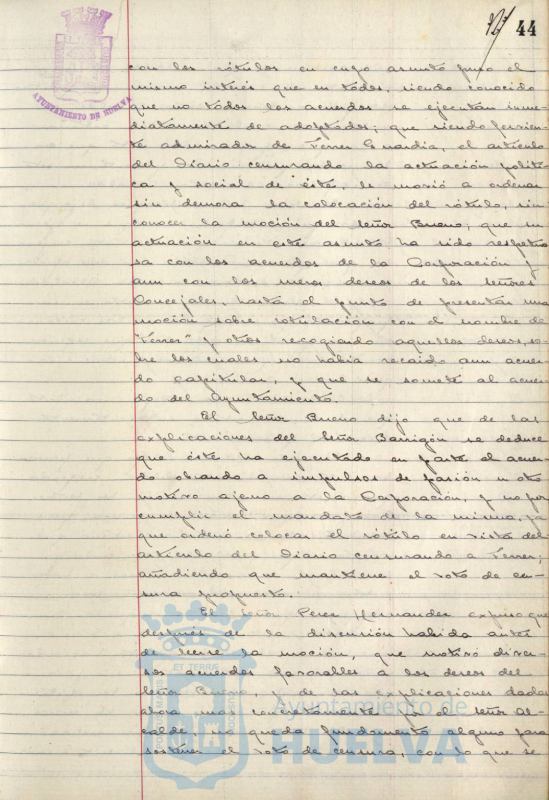 44
AYUNTAMIENTO DE HUELVA
con los rótulos en cuyo asunto puso el
mismo interés que en todos, siendo conocido
que no todos los acuerdos se ejecutan inme
diatamente de adoptados; que siendo fervien
te admirador de Ferrer Guardia, el artículo
del Diario censurando la actuación políti
ca y social de éste, le movió a ordenar
sin demora la colocación del rótulo, sin
conocer la moción del Señor Bueno; que su
actuación en este asunto ha sido respetuo
sa con los acuerdos de la Corporación y
aun con los meros deseos de los señores
Concejales, hasta el punto de presentar una
moción sobre rotulación con el nombre de
"Ferrer" y otros recogiendo aquellos deseos, so-
bre los cuales no había recaido aun acuer
do capitular, y que se somete al acuer
do del Ayuntamiento.
El Señor Bueno dijo que de las
explicaciones del Señor Barrigón se deduce
que éste ha ejecutado en parte el acuer
do obrando a impulsos de pasión u otro
motivo ajeno a la Corporación, y no por
cumplir el mandato de la misma, ya
que ordenó colocar el rótulo en vista del
artículo del Diario censurando a Ferrer;
añadiendo que mantiene el voto de cen-
sura propuesto.
El Señor Perez Hernandez expuso que
después de la discusión habida antes
de leerse la moción, que motivó diver-
sos acuerdos favorables a los deseos del
Señor Bueno, y de las explicaciones dadas
ahora mas concretamente por el Señor Al-
calde, no queda fundamento alguno para
sostener el voto de censura, con lo que se
Ayuntamiento de
HUELVA